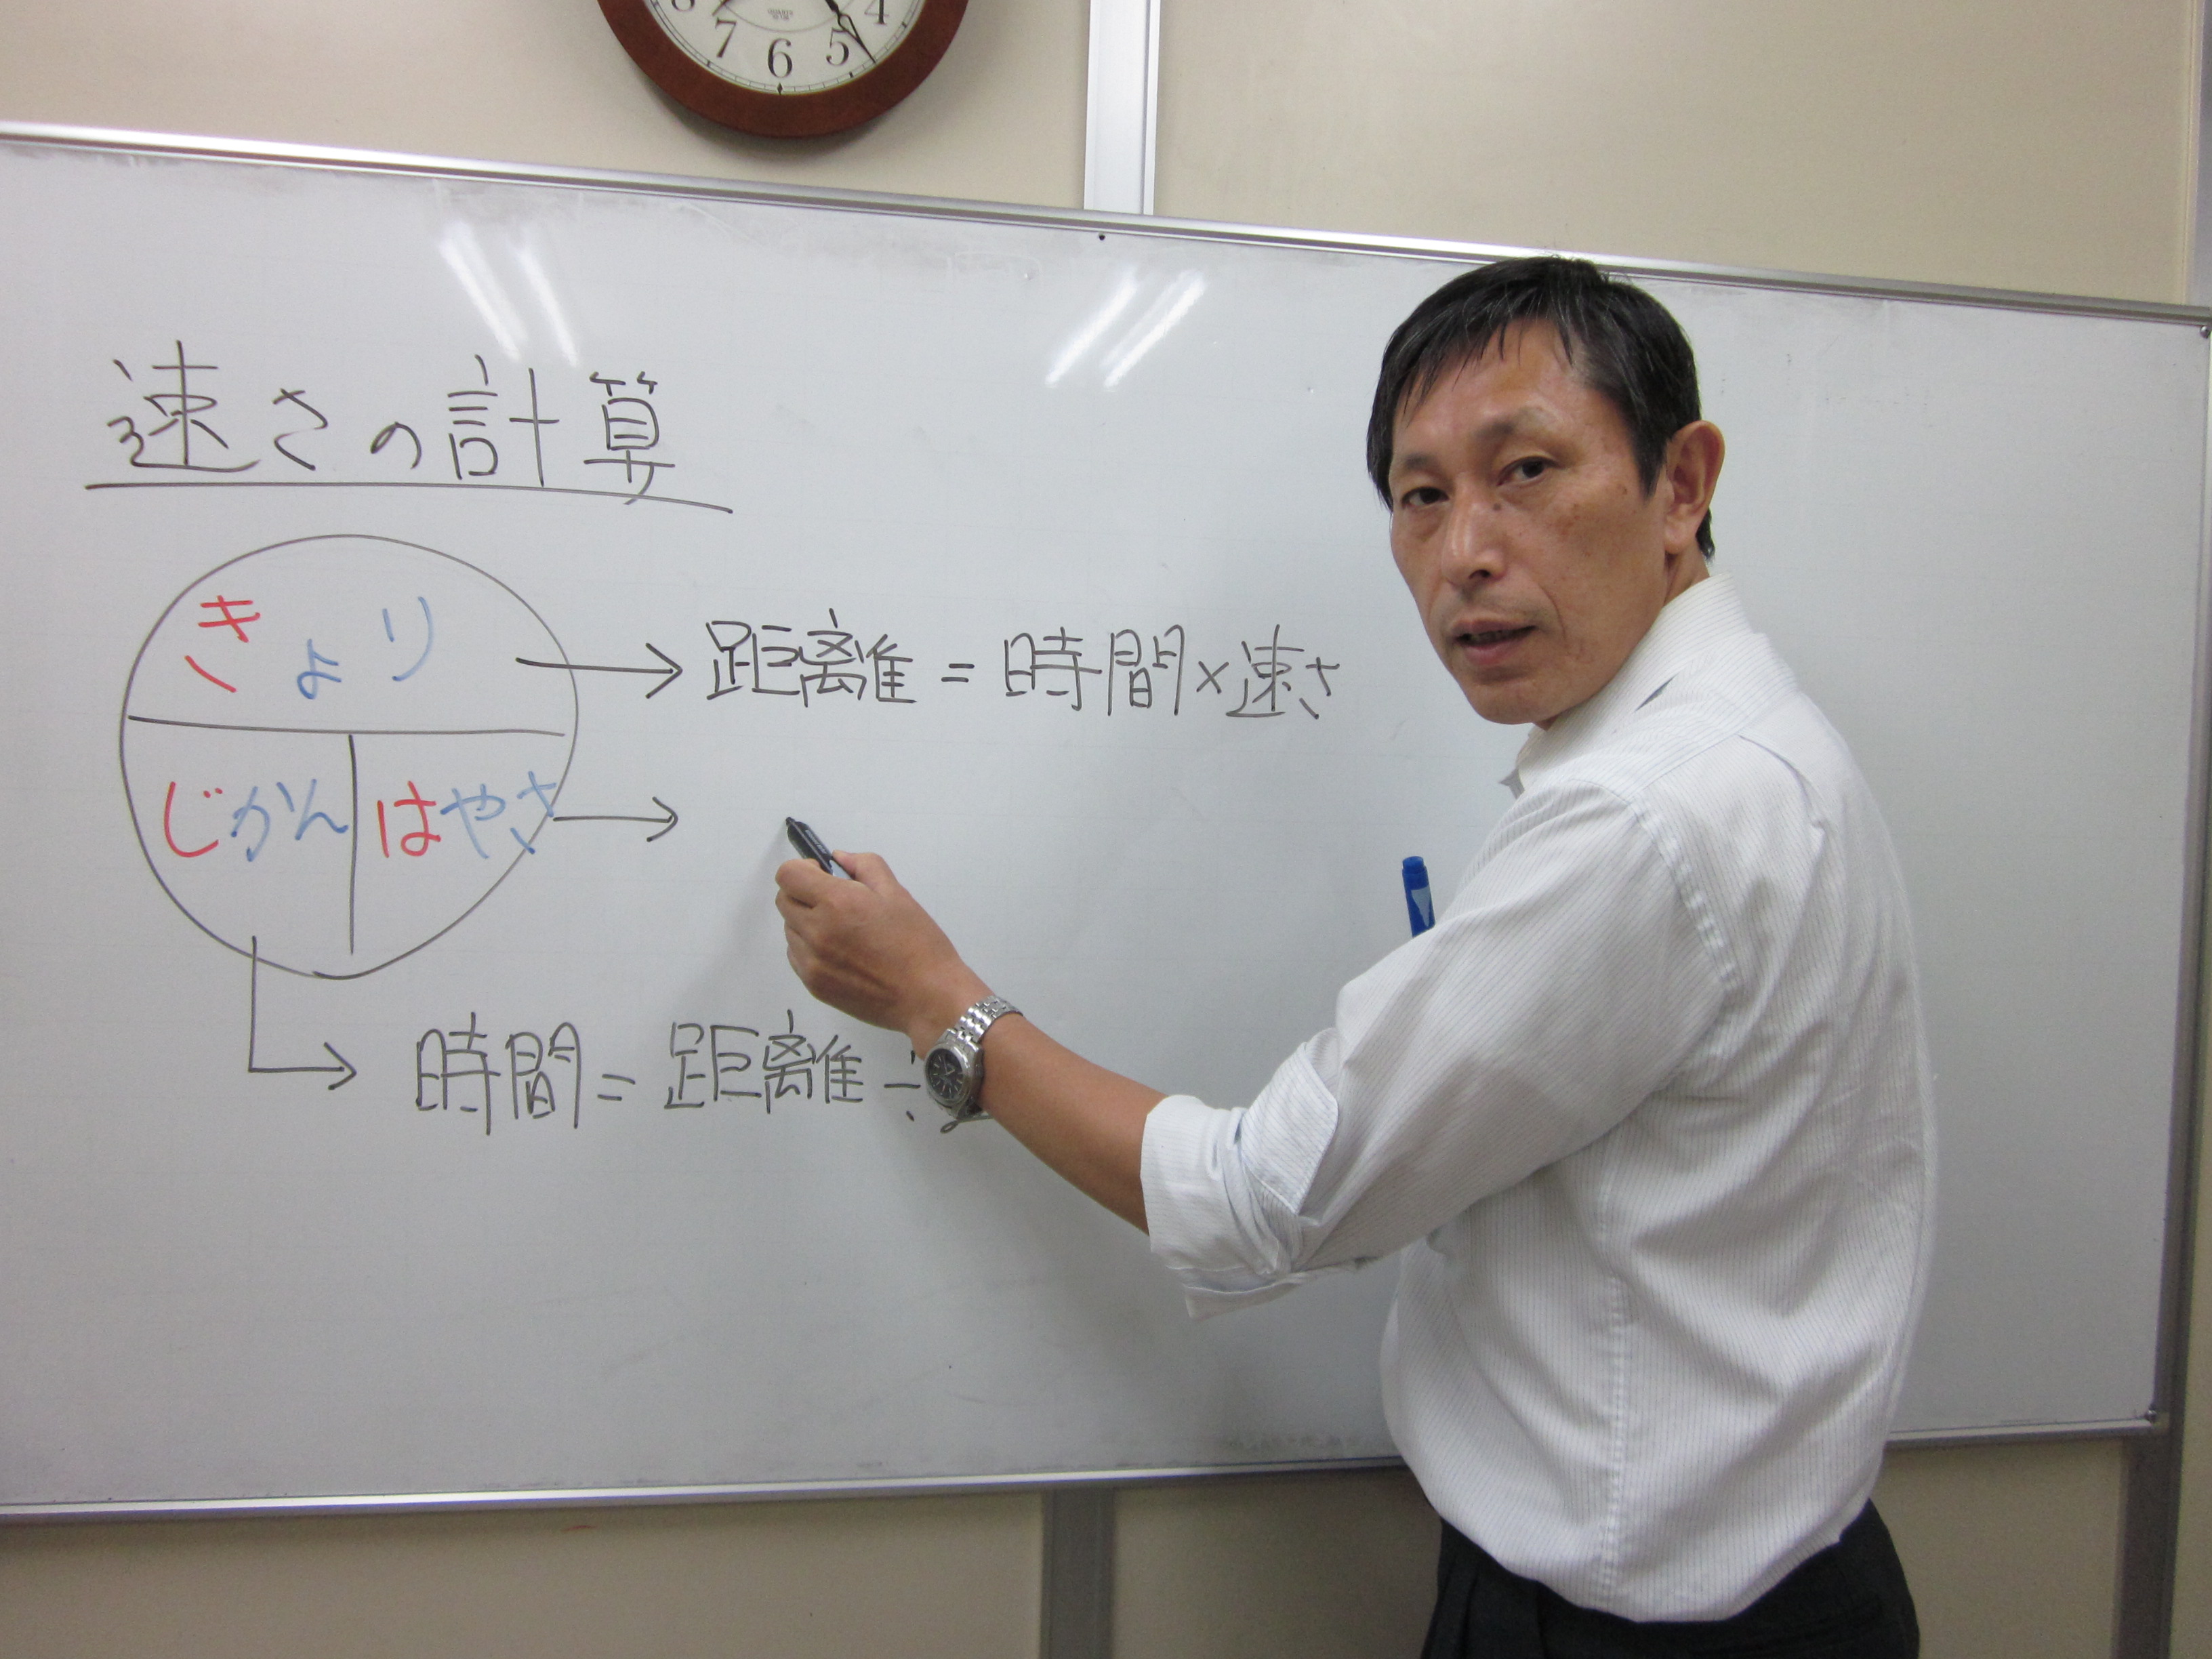 8 7 6 5 4
QUARTZ
速さの計算
きょり
距離=時間×速さ
じかん はやさ
時間=距離÷